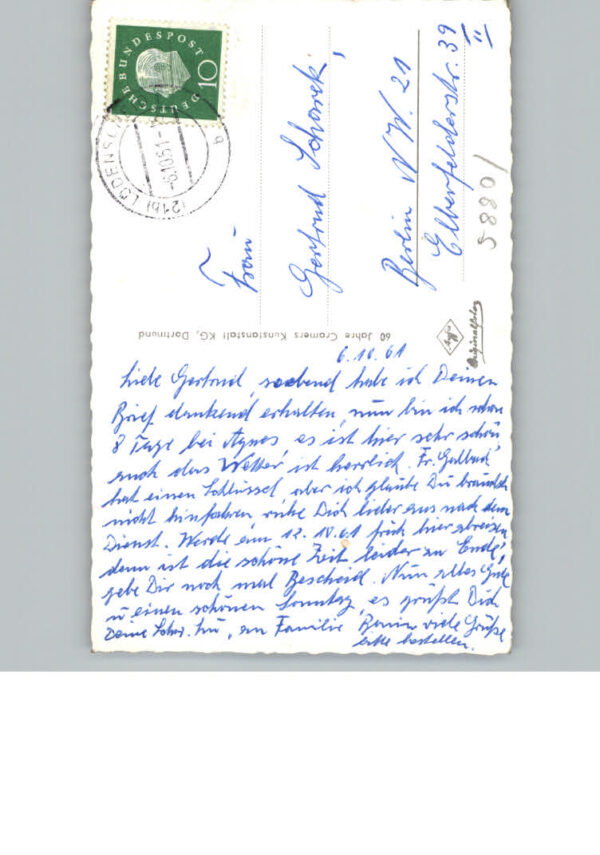 DEUTSCHE BUNDESPOST
10
(21b) LÜDENSC
-6.10.61-
b
Frau
Gertrud
Berlin NW. 21
Elberfelderstr. 39
II
5880/
60 Jahre Cramers Kunstanstalt KG, Dortmund
Agfa
Originalfoto
6.10.61
Liebe Gertrud, soebend habe ich Deinen
Brief dankend erhalten, nun bin ich schon
8 Tage bei Agnes, es ist hier sehr schön,
auch das Wetter ist herrlich. Fr.
hat einen Schlüssel, aber ich glaube Du brauchst
nicht hinfahren, ruhe Dich lieber aus nach dem
Dienst. Werde am 12.10.61 früh hier abreisen,
dann ist die schöne Zeit leider zu Ende,
gebe Dir noch mal Bescheid. Nun alles Gute
u. einen schönen Sonntag, es grüßt Dich
Deine Schw. , an Familie viele Grüße
bitte bestellen.